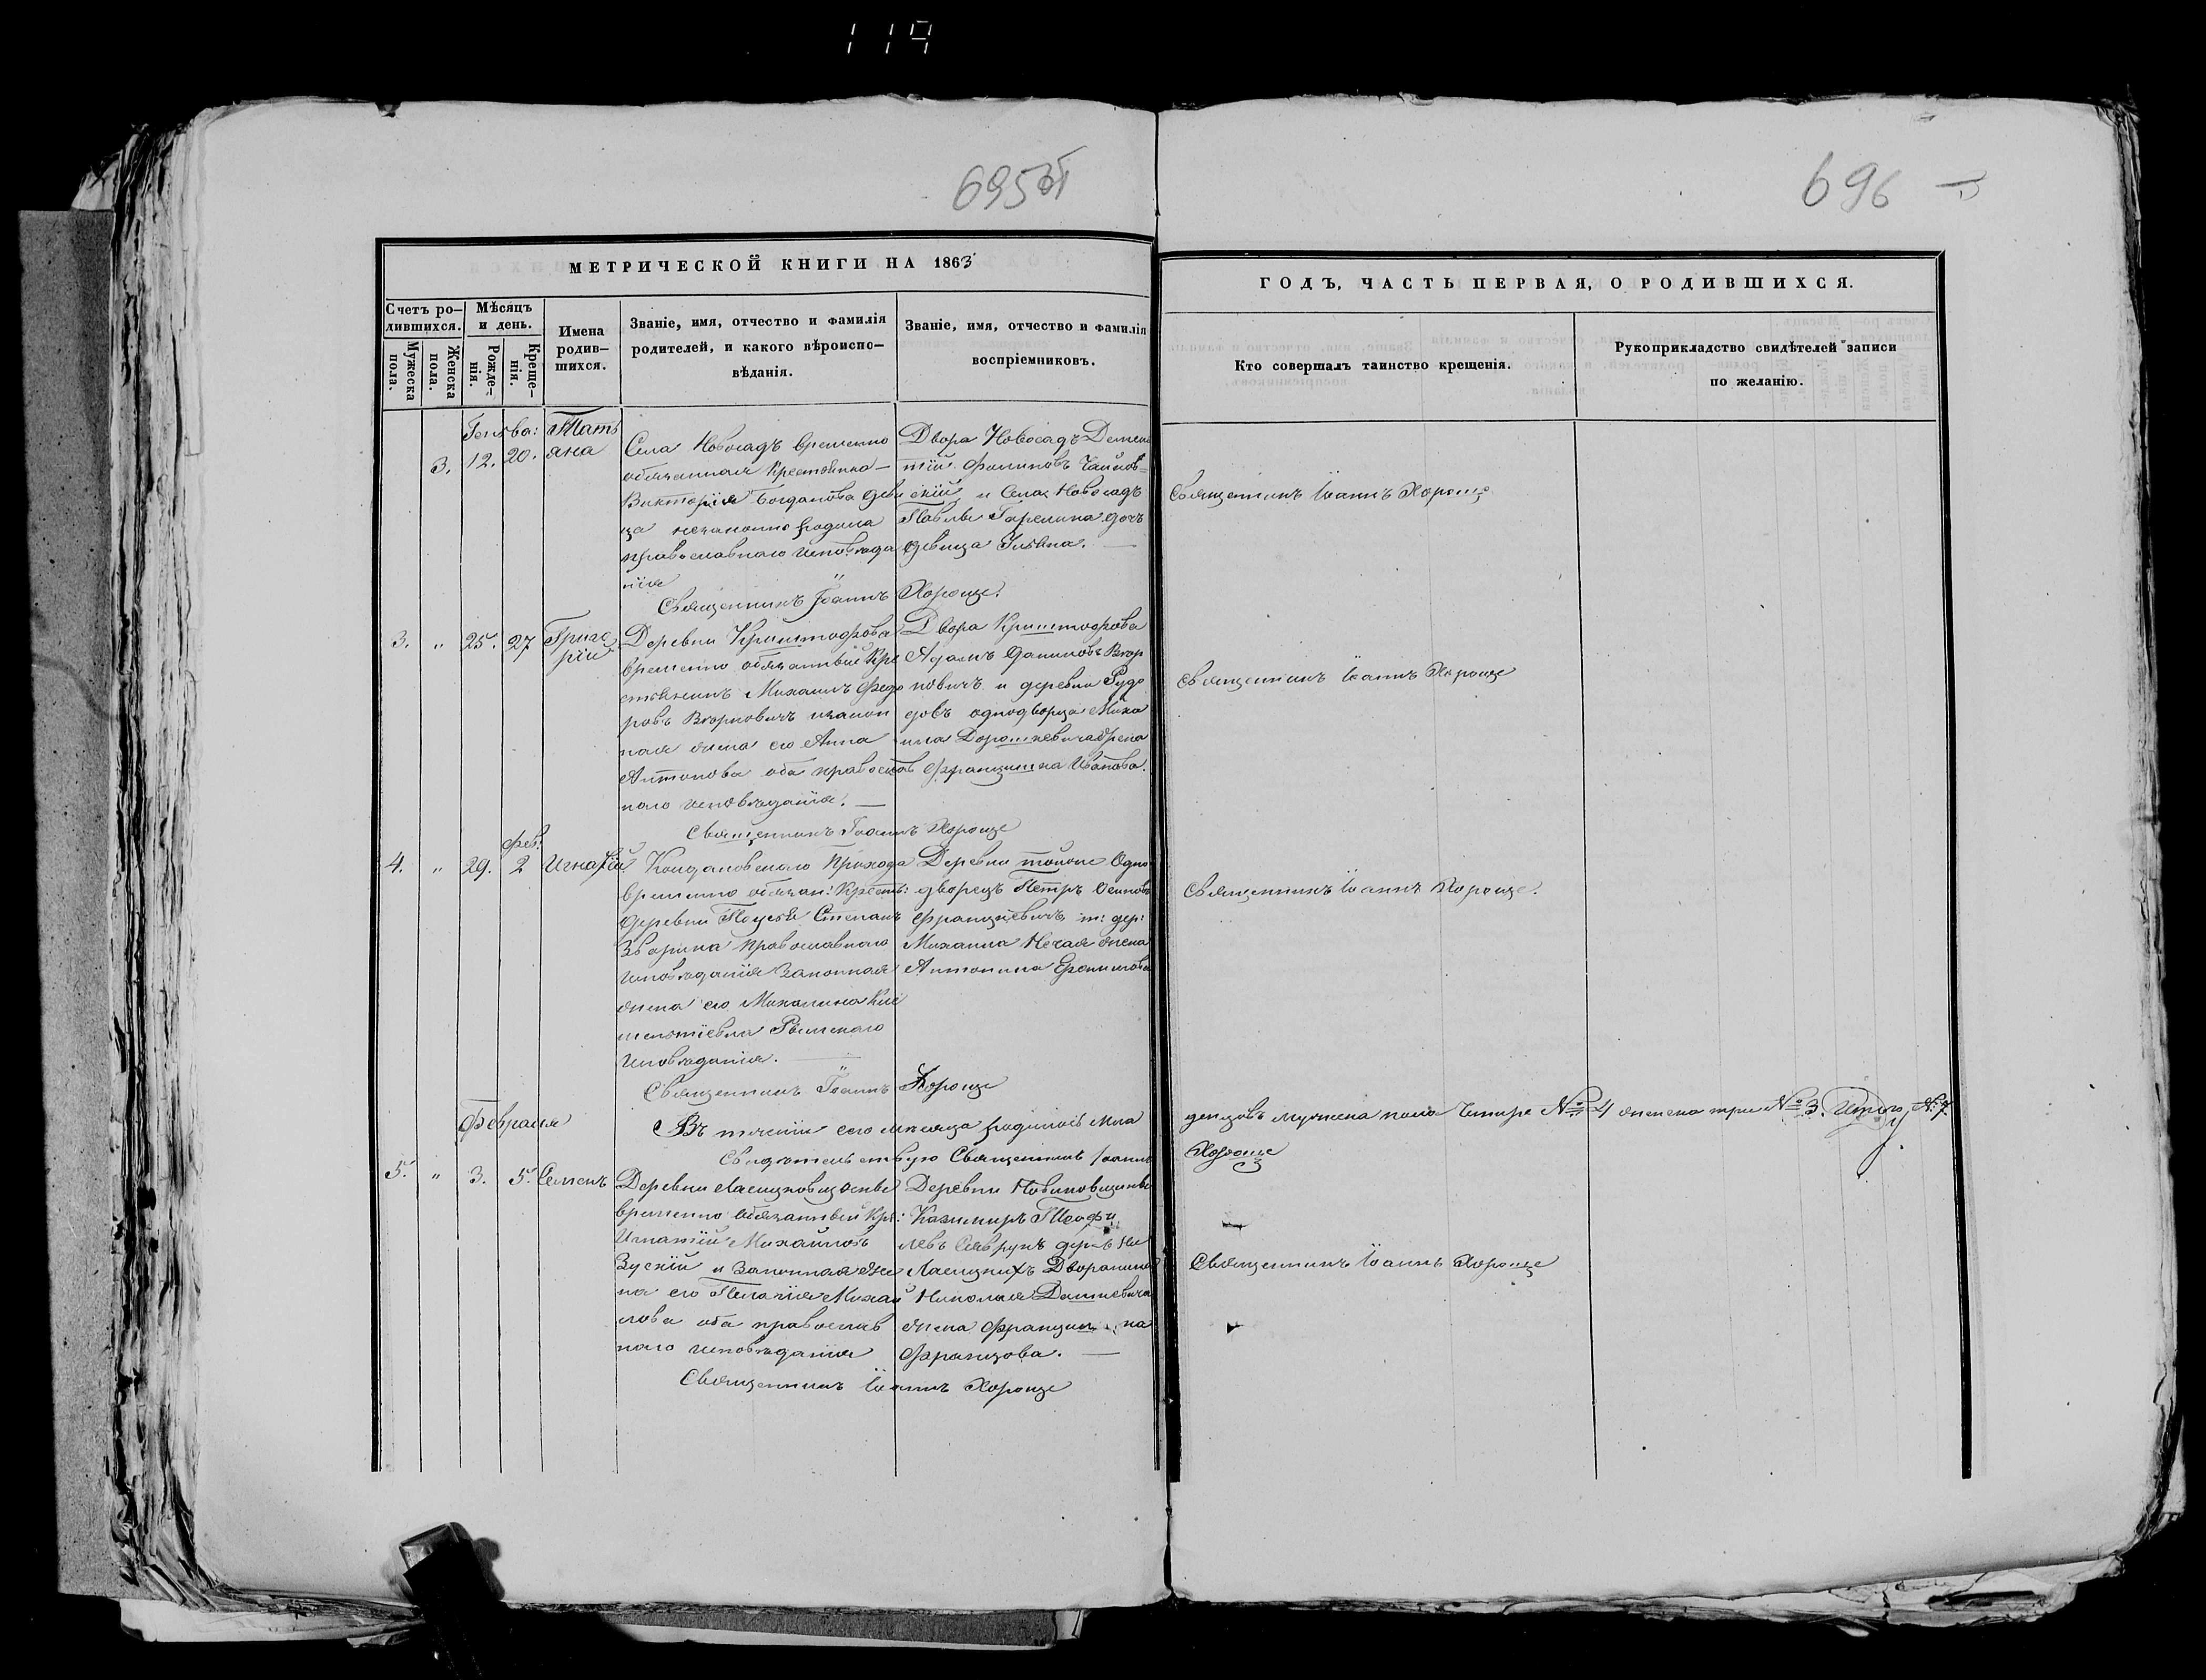 119
695об
696
МЕТРИЧЕСКОЙ КНИГИ НА 1863
ГОДЪ, ЧАСТЬ ПЕРВАЯ, О РОДИВШИХСЯ.
Счетъ ро-
дившихся.
Мужеска
пола.
Женска
пола.
Мѣсяцъ
и день.
Рожде-
нія.
Креще-
нія.
Имена
родив-
шихся.
Званіе, имя, отчество и фамилія
родителей, и какого вѣроиспо-
вѣданія.
Званіе, имя, отчество и фамилія
воспріемниковъ.
Кто совершалъ таинство крещенія.
Рукоприкладство свидѣтелей записи
по желанію.
Генва:
3. 12. 20.
Тать
яна
Села Новосадъ временно
обязанная крестьянка—
Викторія Богданова деви
ца незаконно родила
православнаго исповѣда
нія
Двора Новосадъ Демен
тій Филиповъ Чайков=
скій и Села Новосадъ
Павла Гарелика дочъ
девица Ульяна. —
Священникъ Іоаннъ Хороще.
Священникъ Іоаннъ Хороще
3. " 25. 27
Григо
рій
Деревни Криштофова
временно обязанный Кре
стьянинъ Михаилъ Федо
ровъ Вѣрновичъ изакон
ная жена его Анна
Антонова оба православ
наго исповѣданія. —
Двора Криштофова
Адамъ Даниловъ Вѣр
новичъ и деревни Рудо
довъ однодворца Миха
ила Дорошкевича жена
Францишка Иванова.
Священникъ Іоаннъ Хороще
Священникъ Іоаннъ Хороще
фев:
4. " 29. 2 Игнатій
Койдановскаго Прихода
временно обязан: Кресть:
деревни Поусья Степанъ
Зварика православнаго
исповѣданія Законная
жена его Михалина Кли
ментіевна Римскаго
исповѣданія. —
Деревни тойже Одно
дворецъ Петръ Осиповъ
Францкевичъ т: дер:
Михаила Нечая жена
Антонина Ефимова
Священникъ Іоаннъ Хороще
Священникъ Іоаннъ Хороще.
Въ теченіи сего мѣсяца родилось мла
денцовъ мужеска пола четыре №4 женска три №3. Итого №7.
Свидѣтельствую Священникъ Іоаннъ
Хороще
Февраля
5. " 3. 5. Семенъ
Деревни
временно обязанный Кре:
Игнатій Михайловъ
Зускій и Законная же
на его Пелагія Михай
лова оба православ
наго исповѣданія
Деревни Новиковщизны
Казимиръ Теофи
левъ Северукъ
Ласицкихъ Дворянина
Николая Дашкевича
жена Францишка
Францова. —
Священникъ Іоаннъ Хороще
Священникъ Іоаннъ Хороще